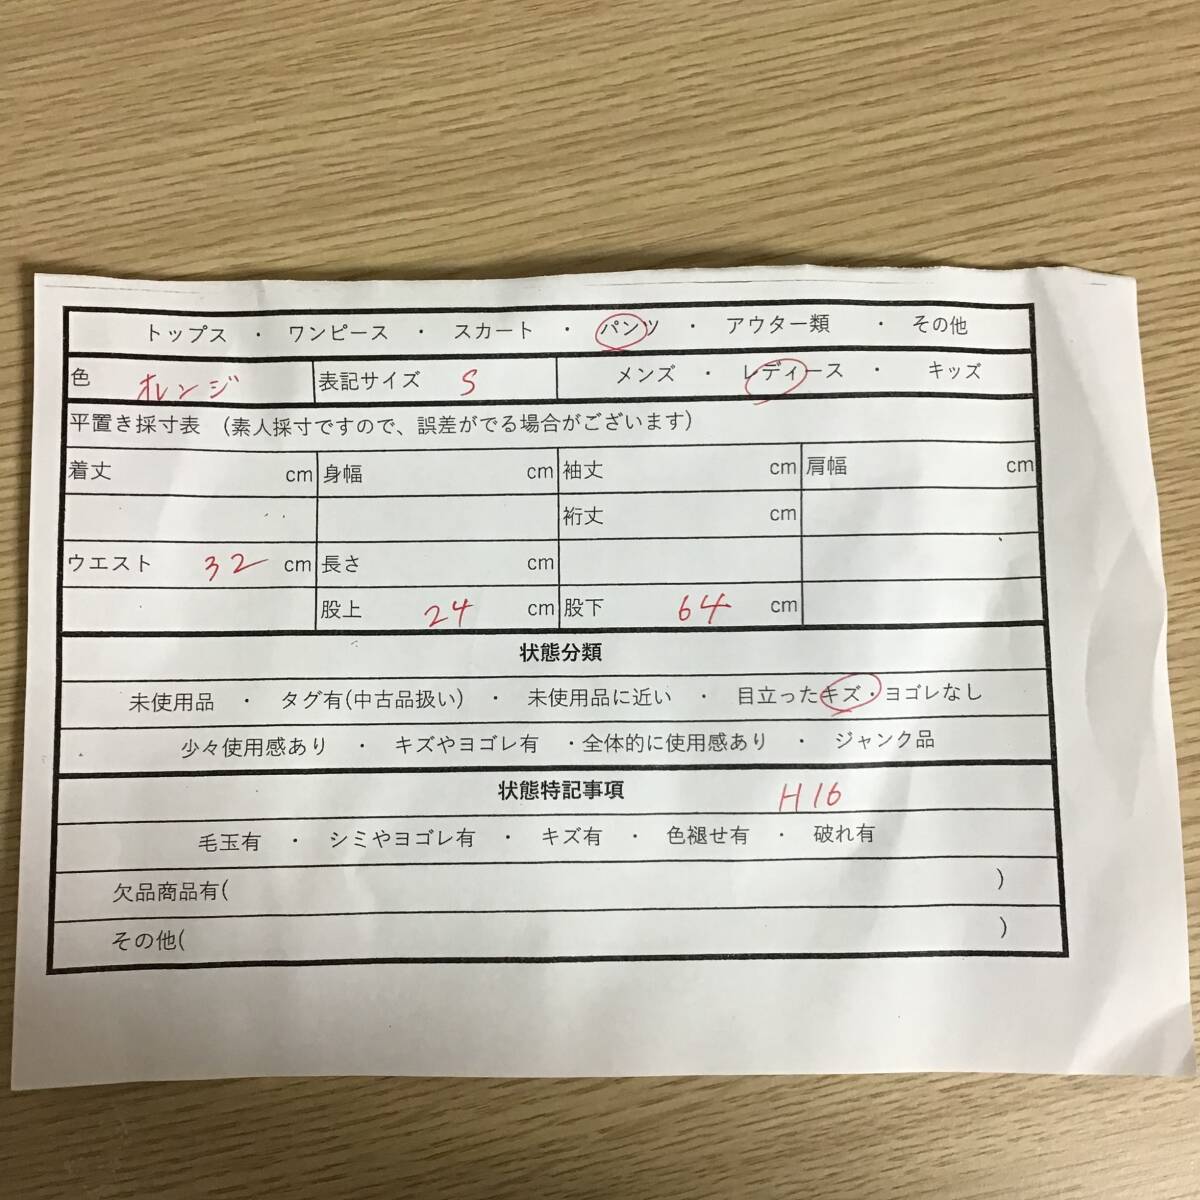 トップス ・ ワンピース ・ スカート ・ パンツ ・ アウター類 ・ その他
色 オレンジ 表記サイズ S メンズ ・ レディース ・ キッズ
平置き採寸表 (素人採寸ですので、誤差がでる場合がございます)
着丈 cm 身幅 cm 袖丈 cm 肩幅 cm
裄丈 cm
ウエスト 32 cm 長さ cm
股上 24 cm 股下 64 cm
状態分類
未使用品 ・ タグ有(中古品扱い) ・ 未使用品に近い ・ 目立ったキズ・ヨゴレなし
少々使用感あり ・ キズやヨゴレ有 ・全体的に使用感あり ・ ジャンク品
状態特記事項 H16
毛玉有 ・ シミやヨゴレ有 ・ キズ有 ・ 色褪せ有 ・ 破れ有
欠品商品有( )
その他( )